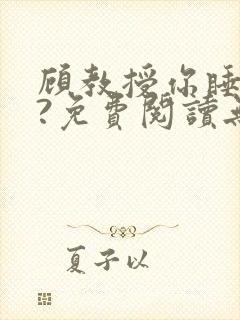 顾教授你睡
?免費閱讀無
夏子以